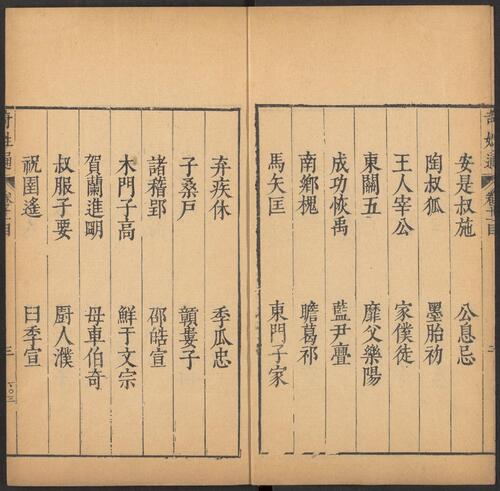 安是叔施 公息忌
陶叔狐 墨胎初
王人宰公 家僕徒
東關五 靡父樂陽
成功恢禹 藍尹亹
南鄉槐 瞻葛祁
馬矢匡 東門子家
弃疾休 季瓜忠
子桑戶 顓叟子
諸稽郢 邵皓宣
木門子高 鮮于文宗
賀蘭進明 母車伯奇
叔服子要 厨人濮
祝圉逢 臼季宣
奇姓通 卷 目 三